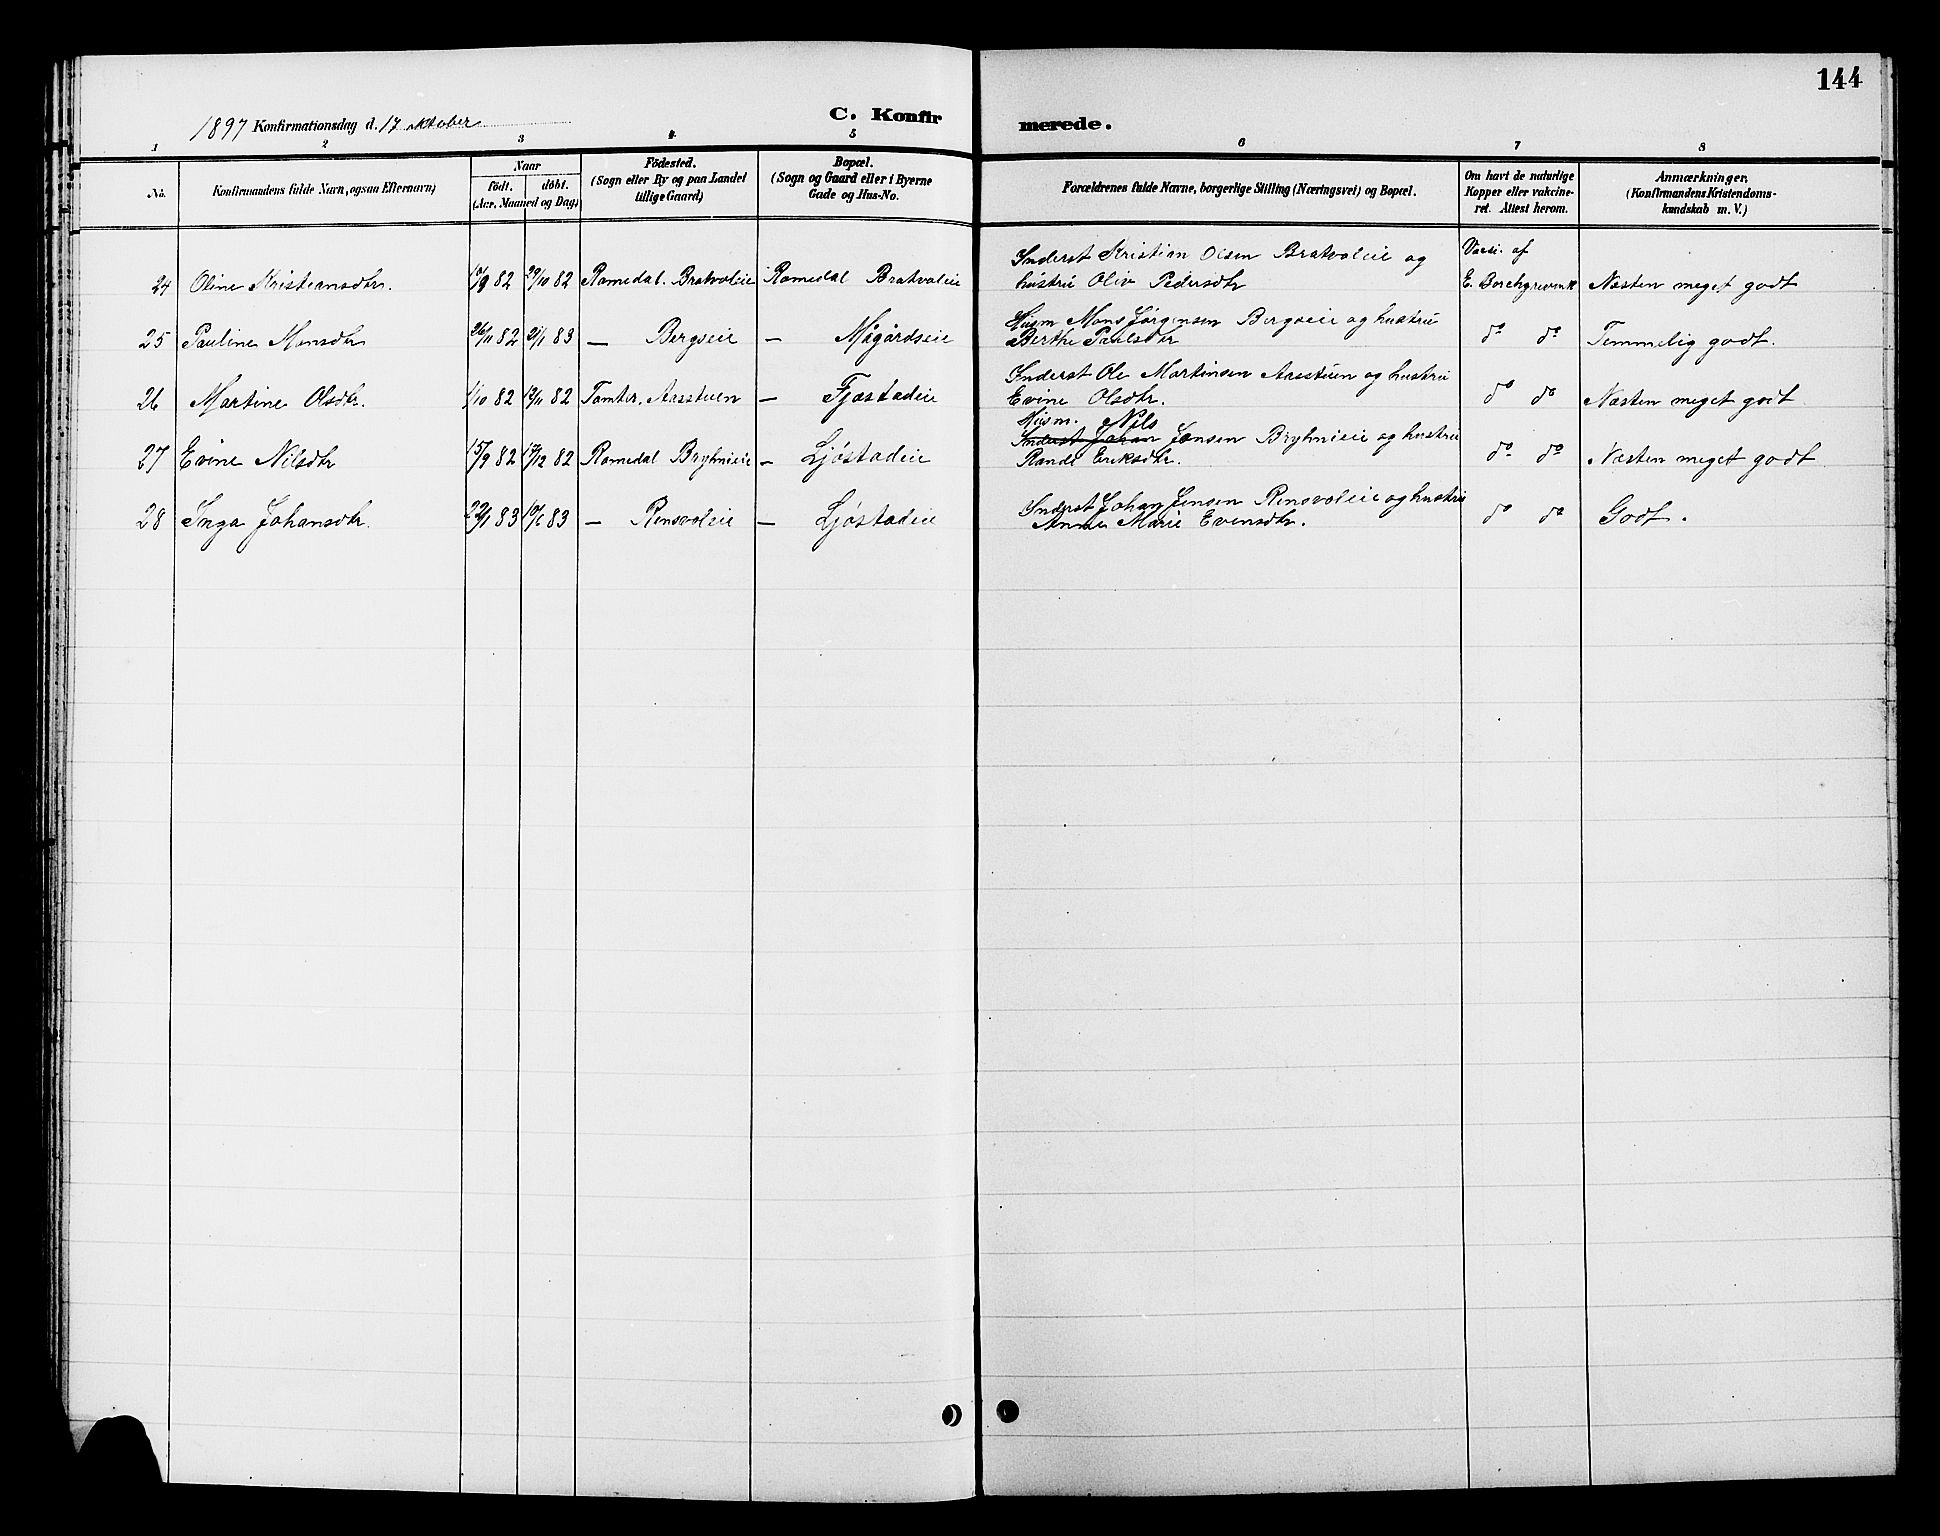 144
1897 Konfirmationsdag d. 17 oktober
C. Konfirmerede.
1 2 3 4 5 6 7 8
No.
Konfirmandens fulde Navn, ogsaa Efternavn)
Naar
født. døbt.
(Aar, Maaned og Dag)
Födested.
(Sogn eller By og paa Landet
tillige Gaard)
Bopæl.
(Sogn og Gaard eller i Byerne
Gade og Hus-No.
Forældrenes fulde Navne, borgerlige Stilling (Næringsvei) og Bopæl.
Om havt de naturlige
Kopper eller vakcine-
ret. Attest herom.
Anmærkninger,
(Konfirmandens Kristendoms-
kundskab m. V.)
24 Oline Kristiansdtr. 10/9 82 29/10 82 Romedal. Bratvoleie Romedal Bratvoleie
Inderst Kristian Olsen Bratvoleie og
hustru Oliv Pedersdtr
Vacsi. af
E. Borchgrevink
Næsten meget godt
25 Pauline Monsdtr 26/11 82 21/1 83 — Bergseie — Mågårdseie
Husm Mons Jørgensen Bergseie og hustru
Berthe Paulsdtr
do do Temmelig godt.
26 Martine Olsdtr. 1/10 82 12/11 82 Tomter, Aasstuen — Fjæstadeie
Inderst Ole Martinsen Aasstuen og hustru
Evine Olsdtr.
do do Næsten meget godt
27 Evine Nilsdtr 15/9 82 17/12 82 Romedal Bryhnieie — Ljøstadeie
Husm. Nils
Inderst Johan Jensen Bryhnieie og hustru
Randi Eriksdtr.
do do Næsten meget godt
28 Inga Johansdtr. 22/1 83 10/6 83 — Rensvoleie — Ljøstadeie
Inderst Johan Jensen Rensvoleie og hustru
Anne Marie Evensdtr.
do do Godt.